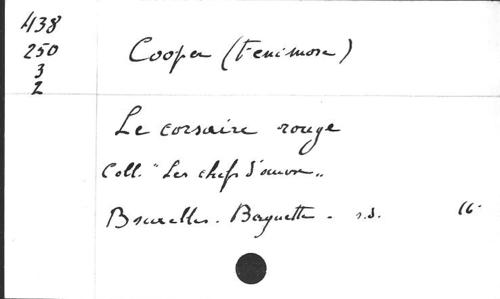 438
250
3
2
Cooper (Fenimore)
Le corsaire rouge
Coll. "Les chefs d'œuvre"
Bruxelles. Baguette. s.d. 16°